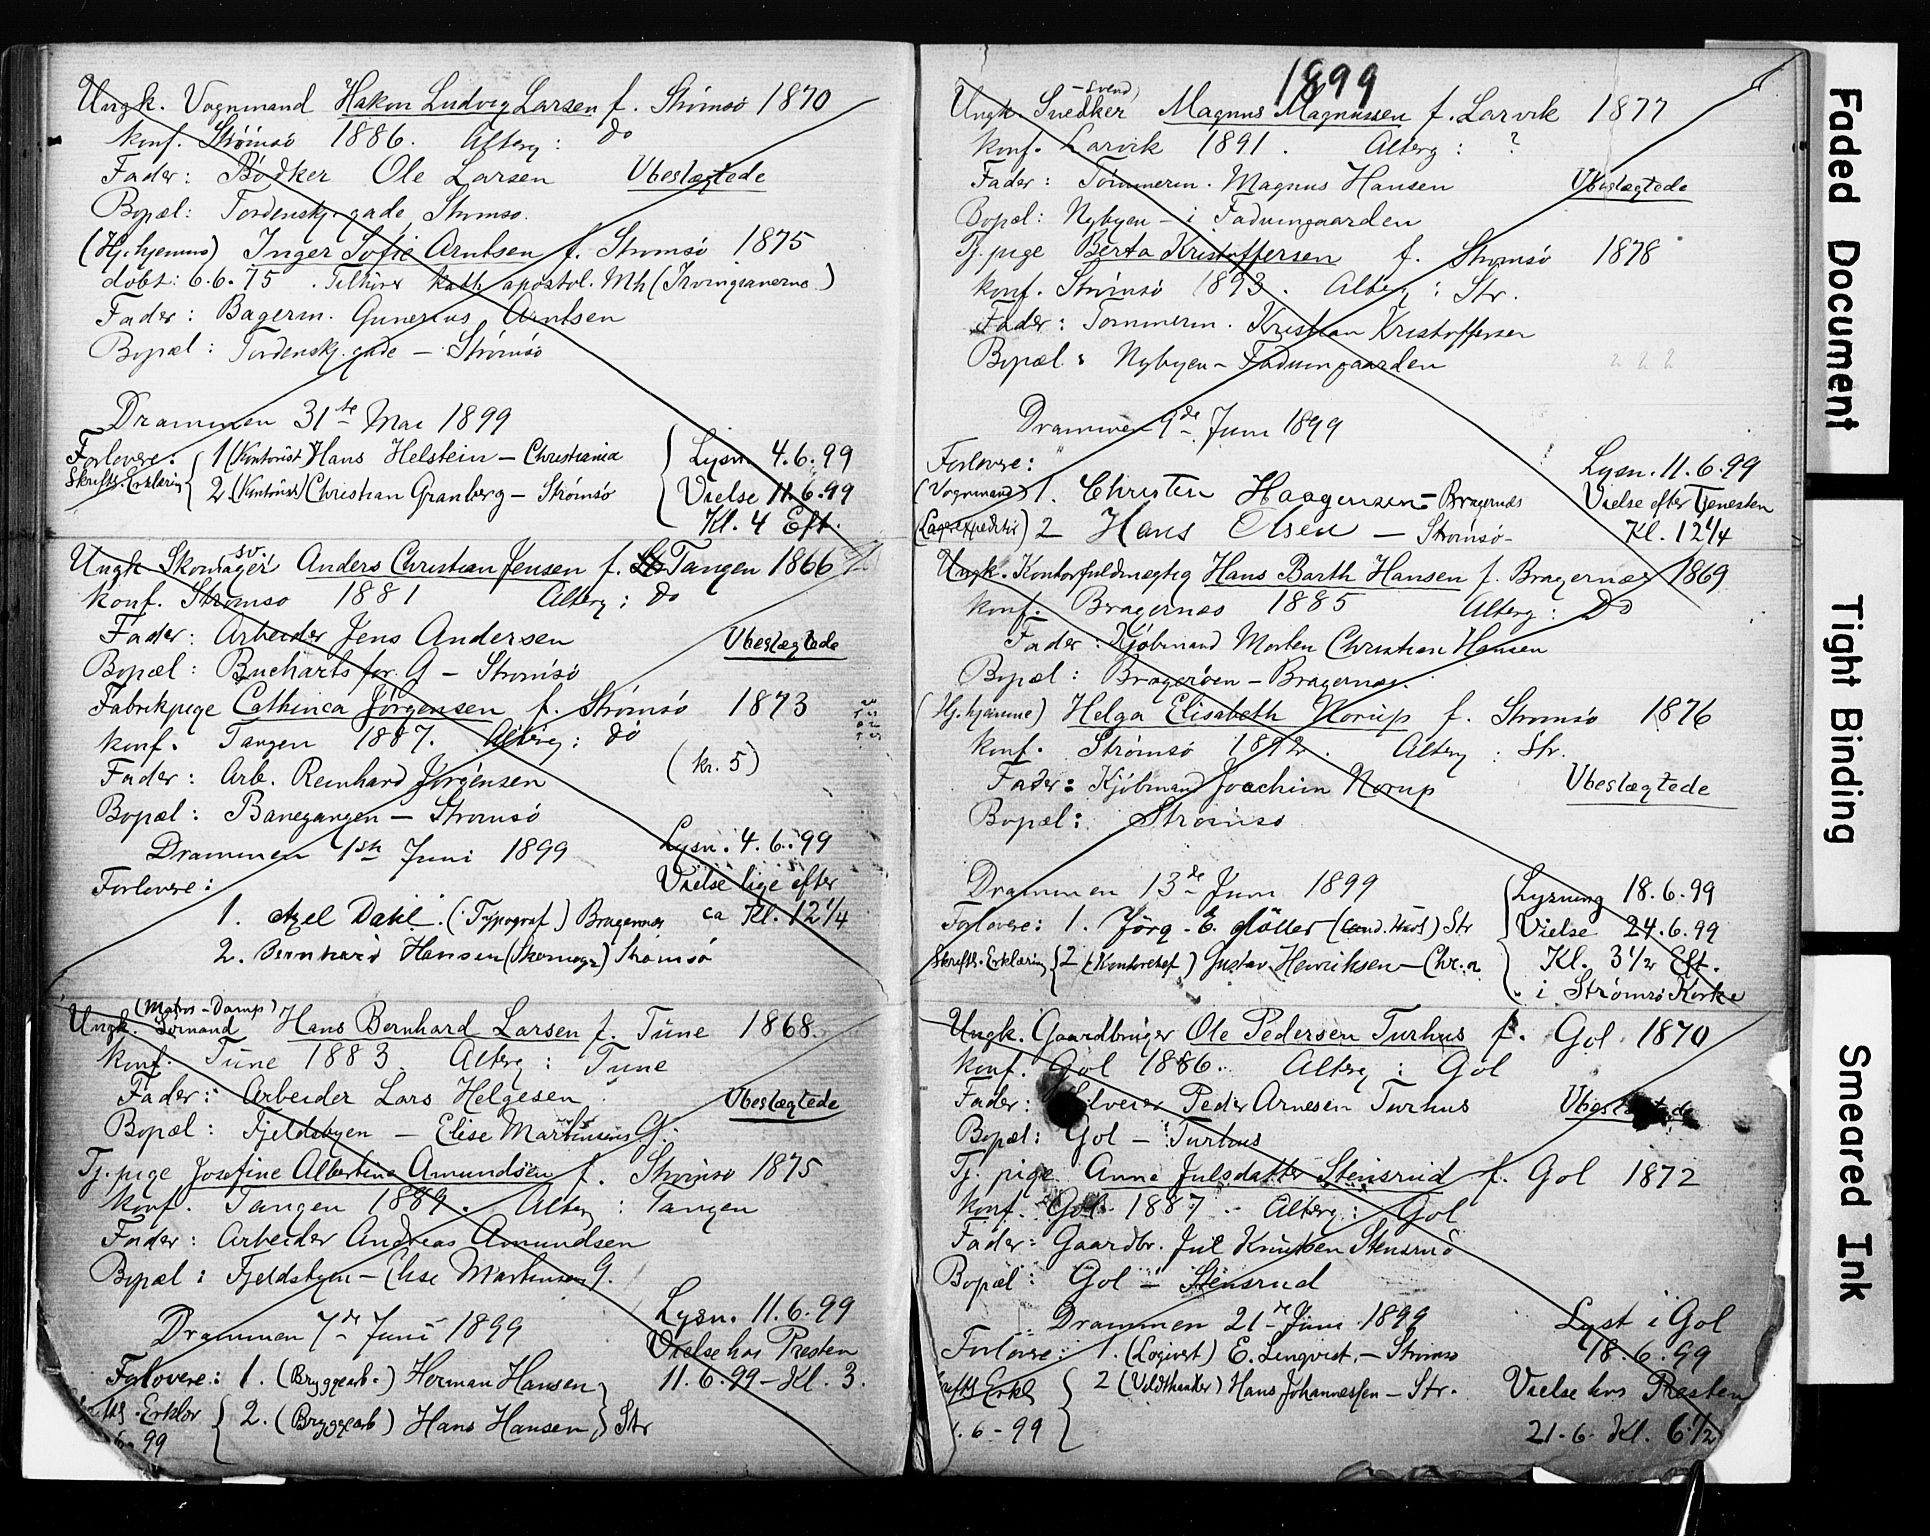 Ungk. Vognmand Hakon Ludvig Larsen f. Strømsö 1870
konf. Strømsö 1886. Alterg: do
Fader: Bödker Ole Larsen Ubeslægtede
Bopæl: Tordenskj. gade Strømsö.
(Hj. hjemme) Inger Sofie Arntsen f. Strømsö 1875
döbt: 6.6.75. Tilhörer kath. apostol. Mh (Irvingianerne)
Fader: Bagerm. Gunerius Arntsen
Bopæl: Tordenskj. gade – Strømsö
Drammen 31te Mai 1899
Forlovere: 1 (Kontorist) Hans Helstein – Christiania Lysn. 4.6.99
Skriftl. Erklæring 2 (Kontorist) Christian Granberg – Strømsö Vielse 11.6.99
Kl. 4 Eft.
Ungk. Skomagersv. Anders Christian Jensen f. Tangen 1866
konf. Strømsö 1881 Alterg: do
Fader: Arbeider Jens Andersen Ubeslægtede
Bopæl: Bucharts for. G – Strømsö
Fabrikpige Cathinca Jörgensen f. Strømsö 1873
konf. Tangen 1887. Alterg: do
Fader: Arb. Reinhard Jörgensen (kr. 5)
Bopæl: Banegangen – Strømsö
Drammen 1ste Juni 1899 Lysn. 4.6.99
Forlovere: Vielse lige efter
1. Axel Dahl. (Typograf) Bragernæs ca Kl. 12 1/4
2. Bernhard Hansen (Skomager) Strømsö
(Matros – Damp)
Ungk. Sømand Hans Bernhard Larsen f. Tune 1868.
konf. Tune 1883 Alterg: Tune
Fader: Arbeider Lars Helgesen Ubeslægtede
Bopæl: Fjeldsbyen – Elise Martinsens G.
Tj. pige Josefine Albertine Amundsen f. Strømsö 1875
konf. Tangen 1889. Alterg: Tangen
Fader: Arbeider Andreas Amundsen
Bopæl: Fjeldsbyen – Elise Martinsens G.
Drammen 7de Juni 1899 Lysn. 11.6.99
Vielse hos Presten
Forlovere: 1. (Bryggearb.) Herman Hansen 11.6.99 – Kl. 3.
Erklær 2. (Bryggearb) Hans Hansen Str
99
1899
Ungk. Snedkersvend Magnus Magnussen f. Larvik 1877
konf. Larvik 1891. Alterg: ?
Fader: Tömmerm. Magnus Hansen Ubeslægtede
Bopæl: Nybyen – i Fadumgaarden
Tj. pige Berta Kristoffersen f. Strømsö 1878
konf. Strømsö 1893. Alterg: Str.
Fader: Tömmerm. Kristian Kristoffersen
Bopæl: Nybyen – Fadumgaarden
Drammen 9de Juni 1899
Forlovere: Lysn. 11.6.99
(Vognmand) 1. Christen Haagensen – Bragernæs Vielse efter Tjenesten
(Lagerexpeditør) 2 Hans Olsen – Strømsö – Kl. 12 1/4
Ungk. Kontorfuldmægtig Hans Barth Hansen f. Bragernæs 1869
konf. Bragernæs 1885 Alterg: Do
Fader: Kjöbmand Morten Christian Hansen
Bopæl: Bragerøen – Bragernæs.
(Hj. hjemme) Helga Elisabeth Norup f. Strømsö 1876
konf. Strømsö 1892. Alterg: Str.
Fader: Kjöbmand Joachim Norup Ubeslægtede
Bopæl: Strømsö
Drammen 13de Juni 1899 Lysning 18.6.99
Forlovere: 1. Jörg. E. Möller (Cand. ) Str Vielse 24.6.99
Skriftl. Erklæring 2 (Kontorchef) Gustav Henriksen – Chr.a Kl. 3 1/2 Eft.
i Strømsö Kirke
Ungk. Gaardbruger Ole Pedersen Turhus f. Gol 1870
konf. Gol 1886. Alterg: Gol
Fader: Peder Arnesen Turhus Ubeslægtede
Bopæl: Gol – Turhus
Tj. pige Anne Julsdatter Stensrud f. Gol 1872
konf. Gol 1887. Alterg: Gol
Fader: Gaardbr. Jul Knutsen Stensrud
Bopæl: Gol – Stensrud
Drammen 21de Juni 1899 Lyst i Gol
Forlovere: 1. (Logivert) E. Lingvist – Strømsö 18.6.99
Erkl 2 (Veldthanker) Hans Johannessen – Str. Vielse hos Presten
.6-99 21.6. Kl. 6 1/2
Faded Document
Tight Binding
Smeared Ink